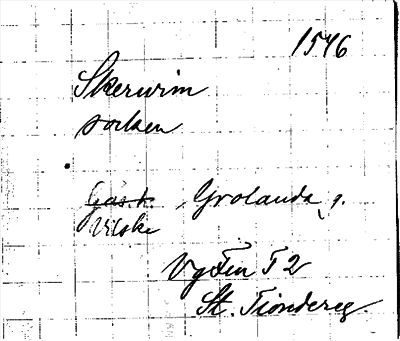 1546
Skerwim
socken
Gäs. h. Grolanda, g.
Vilske
Vg Fru T 2
St. Tiondereg.